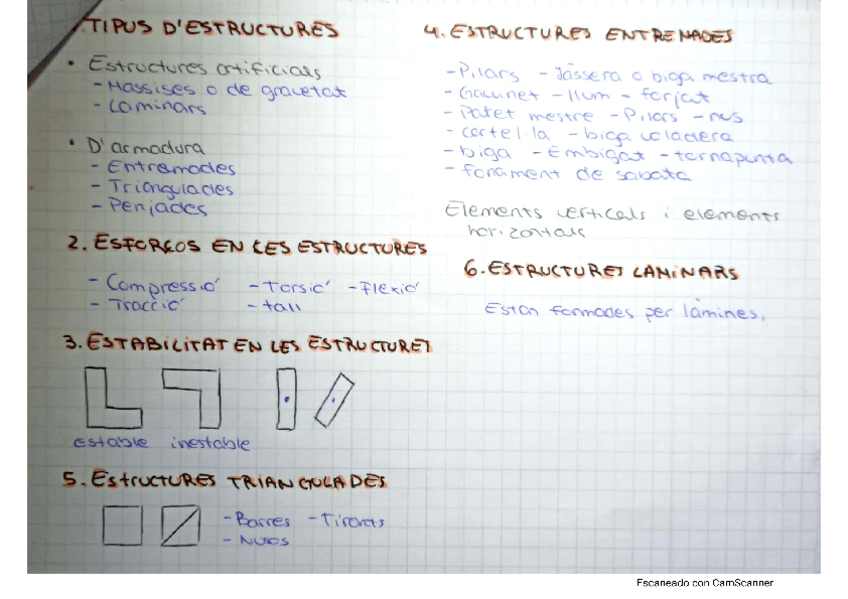 1. TIPUS D'ESTRUCTURES
• Estructures artificials
- Massises o de gravetat
- Laminars
• D'armadura
- Entremades
- Triangulades
- Penjades
2. ESFORÇOS EN LES ESTRUCTURES
- Compressió - Torsió - Flexió
- Tracció - tall
3. ESTABILITAT EN LES ESTRUCTURES
estable inestable
5. ESTRUCTURES TRIANGULADES
- Barres - Tirants
- Nusos
4. ESTRUCTURES ENTREMADES
- Pilars - Jàssera o biga mestra
- llum - forjat
- Paret mestre - Pilars - nus
- cartel·la - biga voladera
- biga - Embigat - tornapunta
- fonament de sabata
Elements verticals i elements
horizontals
6. ESTRUCTURES LAMINARS
Estan formades per làmines.
Escaneado con CamScanner